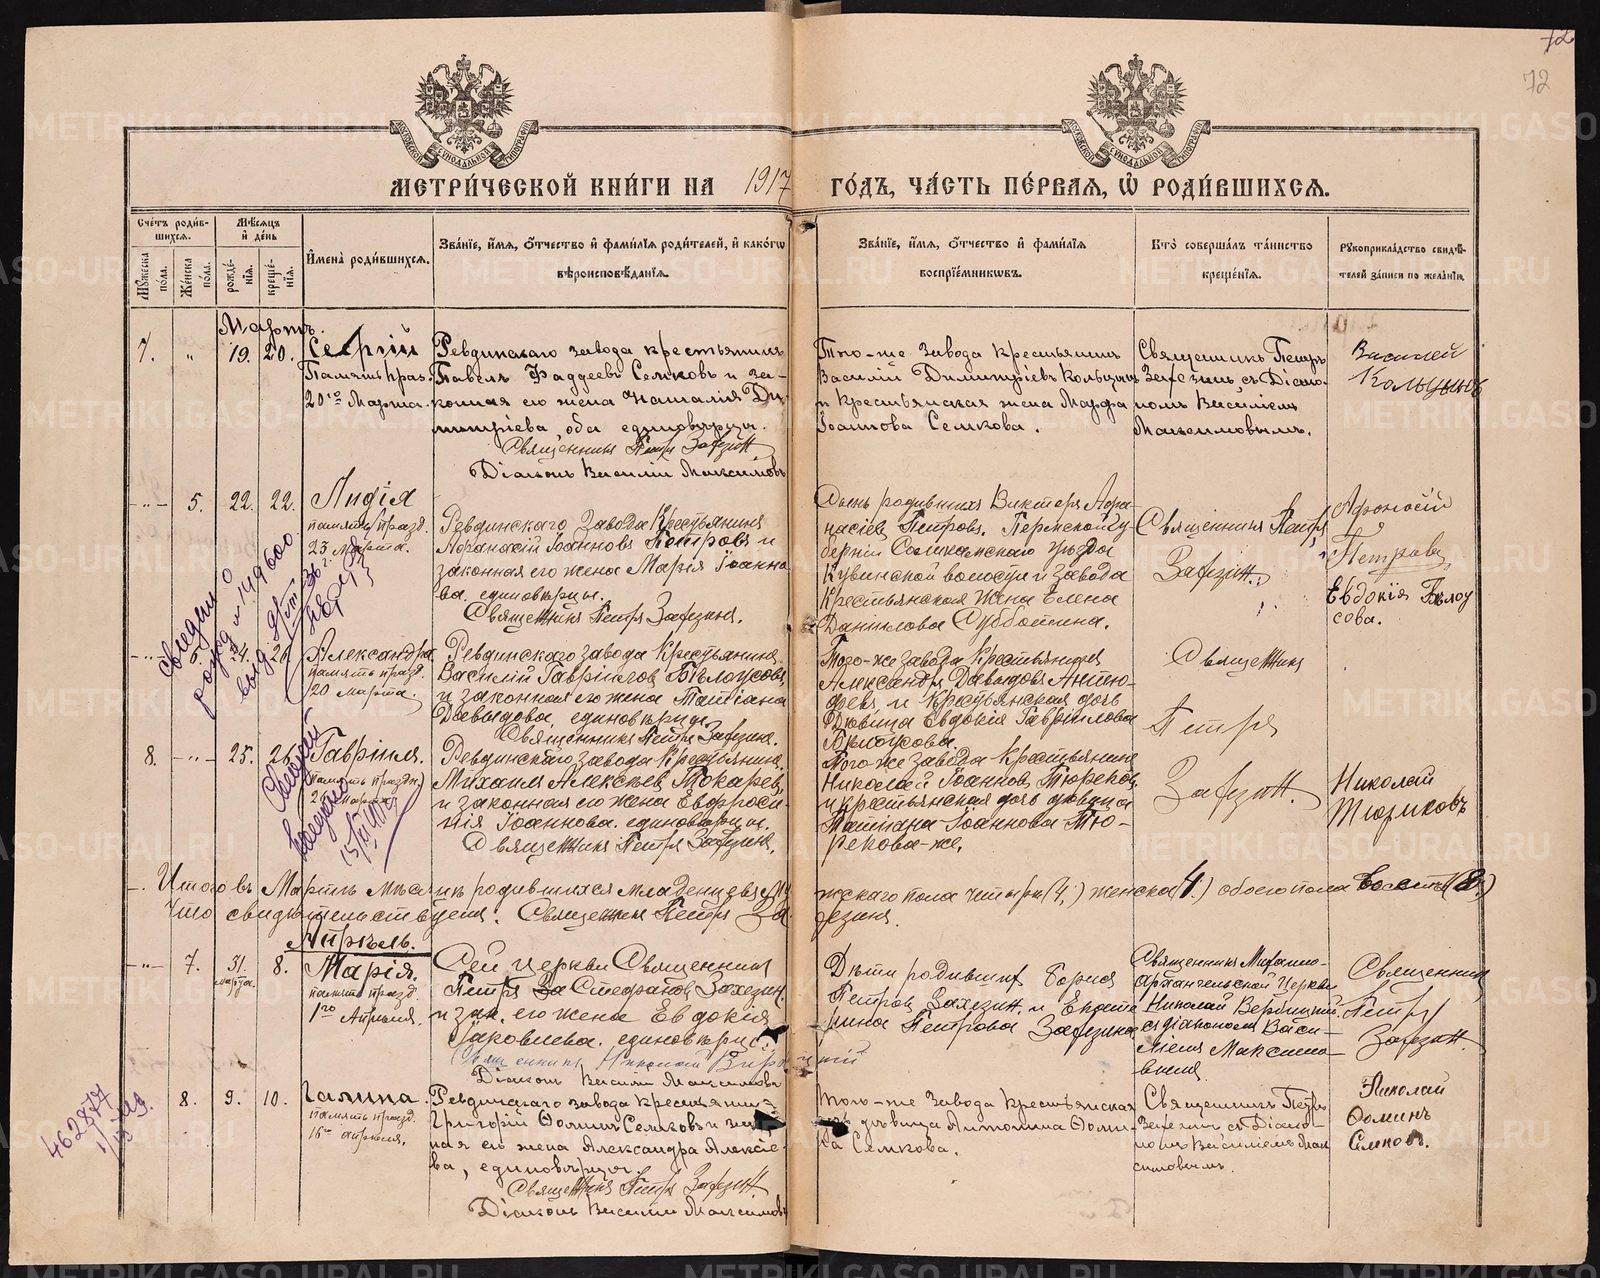 72
72
МОСКОВСКОЙ СѴНОДАЛЬНОЙ ТИПОГРАФІИ
МОСКОВСКОЙ СѴНОДАЛЬНОЙ ТИПОГРАФІИ
МЕТРИ́ЧЕСКОЙ КНИ́ГИ НА 1917 ГО́ДЪ, ЧА́СТЬ ПЕ́РВАѦ, Ѡ҆ РОДИ́ВШИХСѦ.
Сче́тъ роди́в-
шихсѧ.
Мѹ́жеска
по́ла.
Же́нска
по́ла.
Мѣ́сѧцъ
и҆ де́нь
рожде́-
нїѧ.
креще́-
нїѧ.
И҆мена̀ роди́вшихсѧ.
Зва́нїе, и҆́мѧ, ѻ҆́тчество и҆ фами́лїѧ роди́телей, и҆ како́гѡ
вѣроисповѣ́данїѧ.
Зва́нїе, и҆́мѧ, ѻ҆́тчество и҆ фами́лїѧ
воспрїе́мниковъ.
Кто̀ соверша́лъ та́инство
креще́нїѧ.
Рꙋкоприкла́дство свидѣ́-
телей за́писи по жела́нїю.
Мартъ.
7. „ 19. 20. Сергій
Память праз.
20го Марта.
Ревдинскаго завода крестьянинъ
Павелъ Фаддеевъ Семковъ и за-
конная его жена Наталія Ди-
митріева, оба единовѣрцы.
Священникъ Петръ Захезин
Діаконъ Василій Максимовъ
Того-же завода крестьянинъ
Василій Димитріевъ Кольцовъ
и крестьянская жена Марфа
Іоаннова Семкова.
Священникъ Петръ
Захезинъ съ Діако-
номъ Василіемъ
Максимовымъ.
Василей
Кольцовъ
-„- 5. 22. 22. Лидія
память празд.
23 Марта.
Ревдинскаго Завода Крестьянинъ
Афанасій Іоанновъ Петровъ и
законная его жена Марія Іоанно
ва. единовѣрцы.
Священникъ Петръ Захезинъ.
Сынъ родившихъ Викторъ Афа-
насіевъ Петровъ. Пермской гу-
берніи Соликамскаго уѣзда
Кувинской волости и Завода
Крестьянская жена Елена
Данилова Субботина.
Священникъ Петръ
Захезин.
Афонасій
Петровъ
Евдокія Бѣлоу
сова.
Александра
память празд.
20 Марта.
Ревдинскаго завода Крестьянинъ
Василій Гавріиловъ Бѣлоусовъ
и законная его жена Татіана
Давыдова, единовѣрцы.
Священникъ Петръ Захезин.
Того-же завода Крестьянинъ
Александръ Давыдовъ
и Крестьянская дочь
дѣвица Евдокія Гавріилова
Бѣлоусова
Священникъ
Петръ
Захезин.
8. -„- 25. 26. Гавріилъ.
Ревдинскаго завода Крестьянинъ
Михаилъ Алексѣевъ Токаревъ
и законная его жена Евфроси-
нія Іоаннова. единовѣрцы.
Священникъ Петръ Захезин.
Того же завода Крестьянинъ
Николай Іоанновъ Тюриковъ
и крестьянская дочь дѣвица
Татіана Іоаннова Тю-
рикова-же.
Николай
Тюриковъ
Итого въ Мартѣ мѣсяцѣ родившихся младенцевъ мужскаго пола четыре (4,) женска (4.) обоего пола восемь (8.)
Что свидѣтельствуемъ. Священникъ Петръ Захезинъ
Апрѣль.
-„- 7. 31 марта. 8. Марія.
память празд.
1го Апрѣля.
Сей церкви Священникъ
Петръ За Стефановъ Захезин
и зак. его жена Евдокія
Іаковлева. единовѣрцы.
Священникъ Николай
Діаконъ Василій Максимовъ
Дѣти родившихъ Борисъ
Петровъ Захезин. и Екате
рина Петрова Захезина
Священникъ Михаило-
Архангельской Церкви
Николай
съ діакономъ Васи-
ліемъ Максимо-
вымъ.
Священник
Петръ
Захезин.
8. 9. 10. Галина.
память празд.
16го Апрѣля.
Ревдинскаго завода крестьянинъ
Григорій Ѳоминъ Семковъ и закон
ная его жена Александра Алексѣе-
ва, единовѣрцы.
Священникъ Петръ Захезин.
Діаконъ Василій Максимовъ
Того-же завода Крестьянская
дочь дѣвица Антонина Ѳоми-
на Семкова.
Священникъ Петръ
Захезинъ съ Діако
номъ Василіемъ Мак
симовымъ.
Николай
Ѳоминъ
Семков.
462877
METRIKI.GASO-URAL.RU